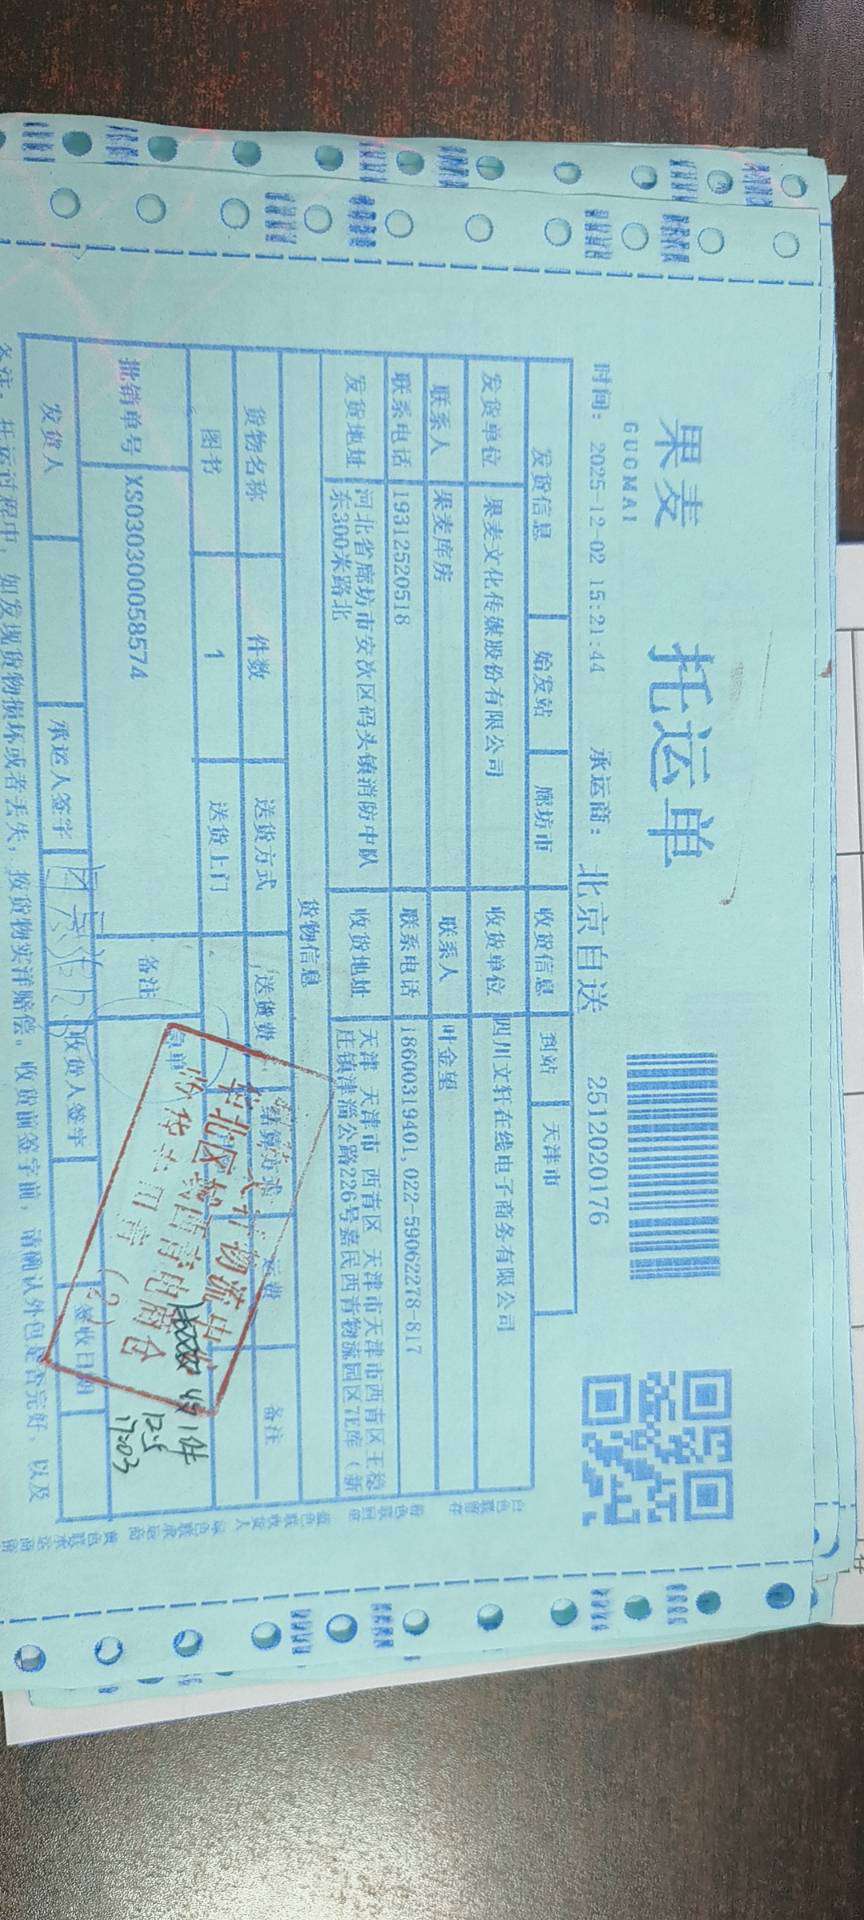 果麦
GUOMAI
托运单
时间: 2025-12-02 15:21:44 承运商: 北京自送 2512020176
发货信息 始发站 廊坊市 收货信息 到站 天津市
发货单位 果麦文化传媒股份有限公司 收货单位 四川文轩在线电子商务有限公司
联系人 果麦库房 联系人 叶金垒
联系电话 19312520518 联系电话 18600319401,022-59062278-817
发货地址 河北省廊坊市安次区码头镇消防中队东300米路北 收货地址 天津 天津市 西青区 天津市天津市西青区王稳庄镇津淄公路226号嘉民西青物流园区7E库（新
货物信息
货物名称 件数 送货方式 送货费 结算方式 运费 备注
图书 1 送货上门
批销单号 XS030300058574 备注
发货人 承运人签字 收货人签字 签收日期
华北区 物流中
收货专用章
(2)
收1件
12.5
17:03
备注: 托运过程中, 如发现货物损坏或者丢失, 按货物实洋赔偿。收货前签字前, 请确认外包是否完好, 以及
白色联留存 粉色联回单 蓝色联收货人 绿色联承运商 黄色联承运商留